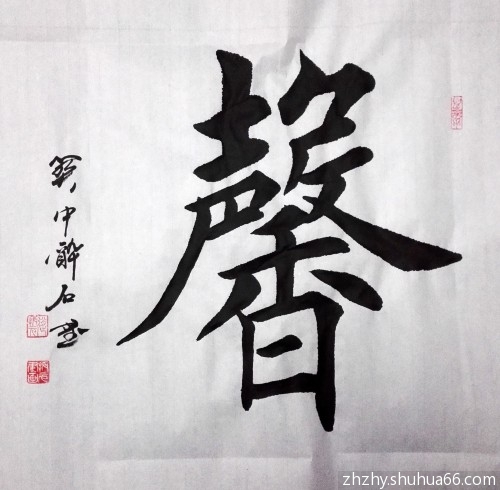 馨
冀中醉石
zhzhy.shuhua66.com